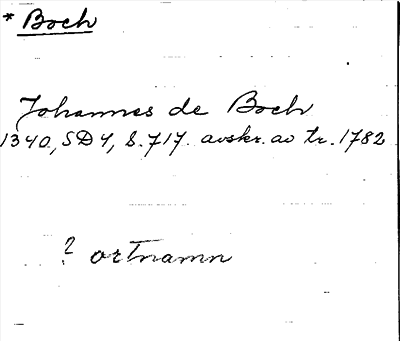 * Boch
Johannes de Boch
1340, SD 4, S. 717. avskr. av tr. 1782
? ortnamn